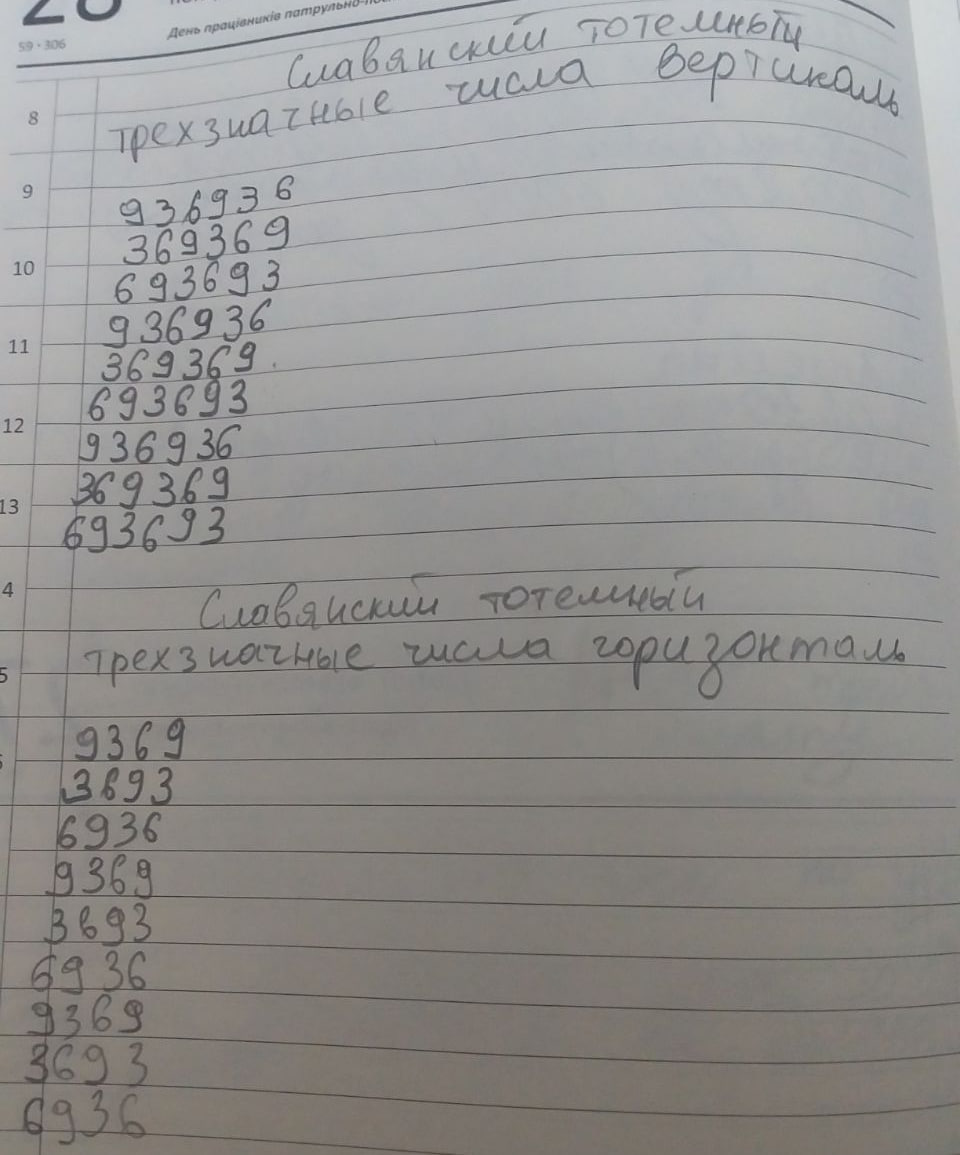 28
59 • 306
День працівників патрульно-пос
Славянский тотемный
8
трехзначные числа вертикаль
9
936936
369369
10
693693
936936
11
369369.
693693
12
936936
369369
13
693693
4
Славянский тотемный
5
трехзначные числа горизонталь
9369
3693
6936
9369
3693
6936
9369
3693
6936